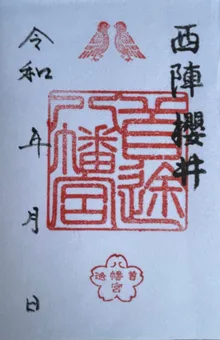 西陣櫻井
首途
八幡宮
令和 年 月 日
首途
八幡宮